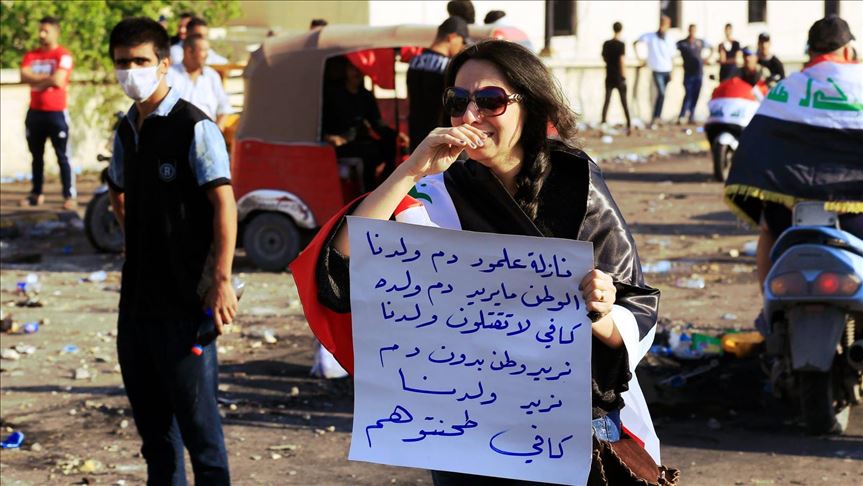 نازلة علمود دم ولدنا
الوطن مايريد دم ولده
كافي لاتقتلون ولدنا
نريد وطن بدون دم
نريد ولدنا
كافي طحنتوهم
R